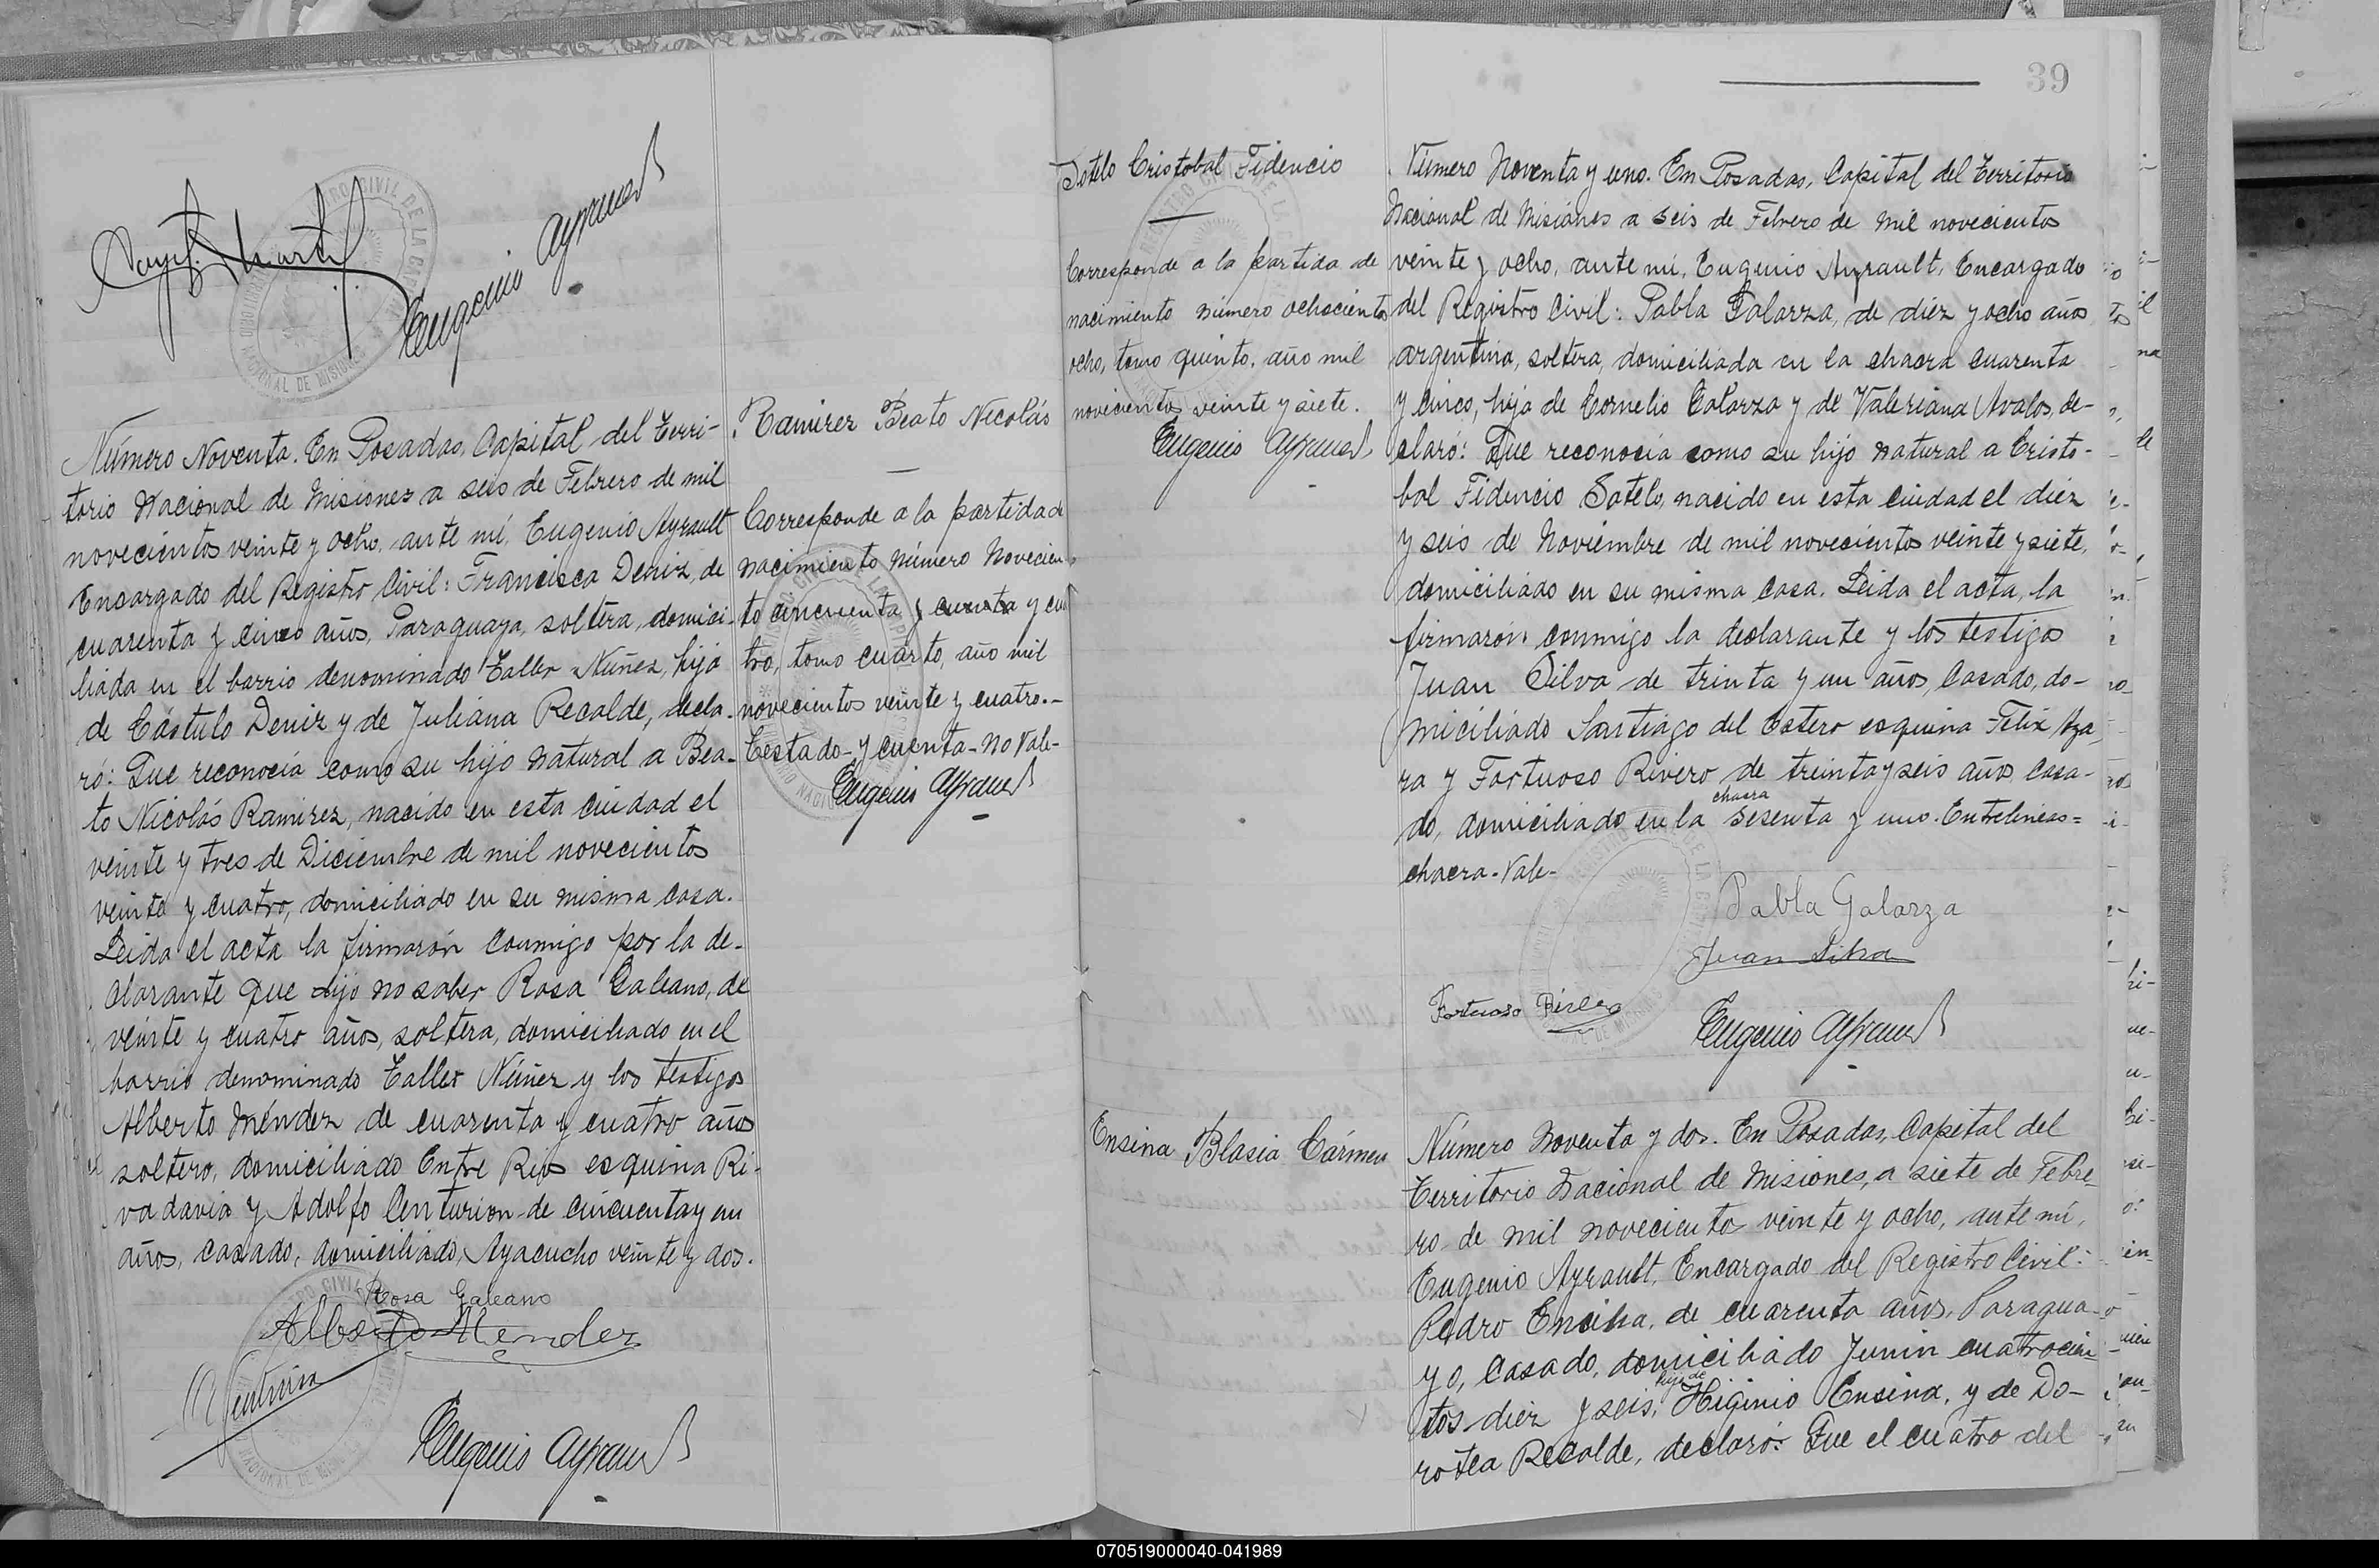 Eugenio Ayrault
Número Noventa. En Posadas, Capital del Terri-
torio Nacional de Misiones a seis de Febrero de mil
novecientos veinte y ocho, ante mí, Eugenio Ayrault
Encargado del Registro Civil: Francisca Deniz, de
cuarenta y cinco años, Paraguaya, soltera, domici-
liada en el barrio denominado Taller Núñez, hija
de Cástulo Deniz y de Juliana Recalde, decla-
ró: Que reconocía como su hijo natural a Bea-
to Nicolás Ramirez, nacido en esta ciudad el
veinte y tres de Diciembre de mil novecientos
veinte y cuatro, domiciliado en su misma casa.
Leida el acta la firmarón conmigo por la de-
clarante que dijo no saber Rosa Galeano, de
veinte y cuatro años, soltera, domiciliado en el
barrio denominado Taller Núñez y los testigos
Alberto Méndez de cuarenta y cuatro años
soltero, domiciliado Entre Rios esquina Ri-
vadavia y Adolfo Centurion de cincuenta y un
años, casado, domiciliado, Ayacucho veinte y dos.
Rosa Galeano
Alberto Mendez
Centurion
Eugenio Ayrault
Ramirez Beato Nicolás
Corresponde a la partida de
nacimiento número Novecien-
to cincuenta y cuenta y cua
tro, tomo cuarto, año mil
novecientos veinte y cuatro.-
Testado- y cuenta- No Vale-
Eugenio Ayrault
39
Sotelo Cristobal Fidencio
Corresponde a la partida de
nacimiento número ochocientos
ocho, tomo quinto, año mil
novecientos veinte y siete.
Eugenio Ayrault
Número Noventa y uno. En Posadas, Capital del Territorio
Nacional de Misiones a seis de Febrero de mil novecientos
veinte y ocho, ante mí, Eugenio Ayrault, Encargado
del Registro Civil: Pabla Galarza, de diez y ocho años
argentina, soltera, domiciliada en la chacra cuarenta
y cinco, hija de Cornelio Galarza y de Valeriana Avalos, de-
claró: Que reconocía como su hijo natural a Cristo-
bal Fidencio Sotelo, nacido en esta ciudad el diez
y seis de Noviembre de mil novecientos veinte y siete,
domiciliado en su misma casa. Leida el acta, la
firmarón conmigo la declarante y los testigos
Juan Silva de trinta y un años, casado, do-
miciliado Santiago del Estero esquina Felix Aza-
ra y Fortuoso Rivero de treinta y seis años, casa-
do, domiciliado en la chacra sesenta y uno. Entrelineas=
chacra-Vale-
Pabla Galarza
Juan Silva
Fortuoso Rivero
Eugenio Ayrault
Ensina Blasia Cármen
Número Noventa y dos. En Posadas, Capital del
Territorio Nacional de Misiones, a siete de Febre-
ro de mil novecientos veinte y ocho, ante mí,
Eugenio Ayrault, Encargado del Registro Civil:
Pedro Encina, de cuarenta años, Paragua-
yo, casado, domiciliado Junin cuatrocien-
tos diez y seis, hijo de Higinio Ensina, y de Do-
rotea Recalde, declaró: Que el cuatro del
070519000040-041989